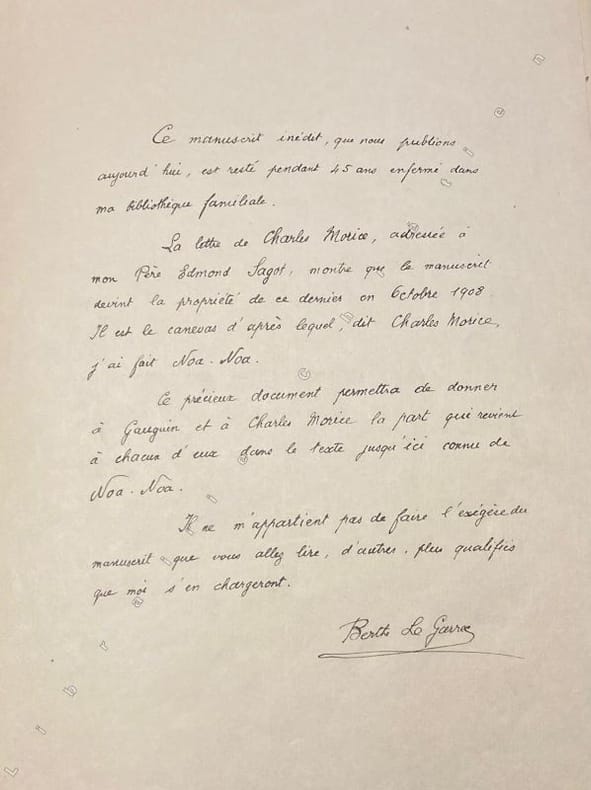 Ce manuscrit inédit, que nous publions
aujourd'hui, est resté pendant 45 ans enfermé dans
ma bibliothèque familiale.
La lettre de Charles Morice, adressée à
mon Père Edmond Sagot, montre que le manuscrit
devint la propriété de ce dernier en Octobre 1908
Il est le canevas d'après lequel, dit Charles Morice,
j'ai fait Noa-Noa.
Ce précieux document permettra de donner
à Gauguin et à Charles Morice la part qui revient
à chacun d'eux dans le texte jusqu'ici connu de
Noa-Noa.
Il ne m'appartient pas de faire l'exégèse du
manuscrit que vous allez lire, d'autres, plus qualifiés
que moi s'en chargeront.
Berthe Le Garrec